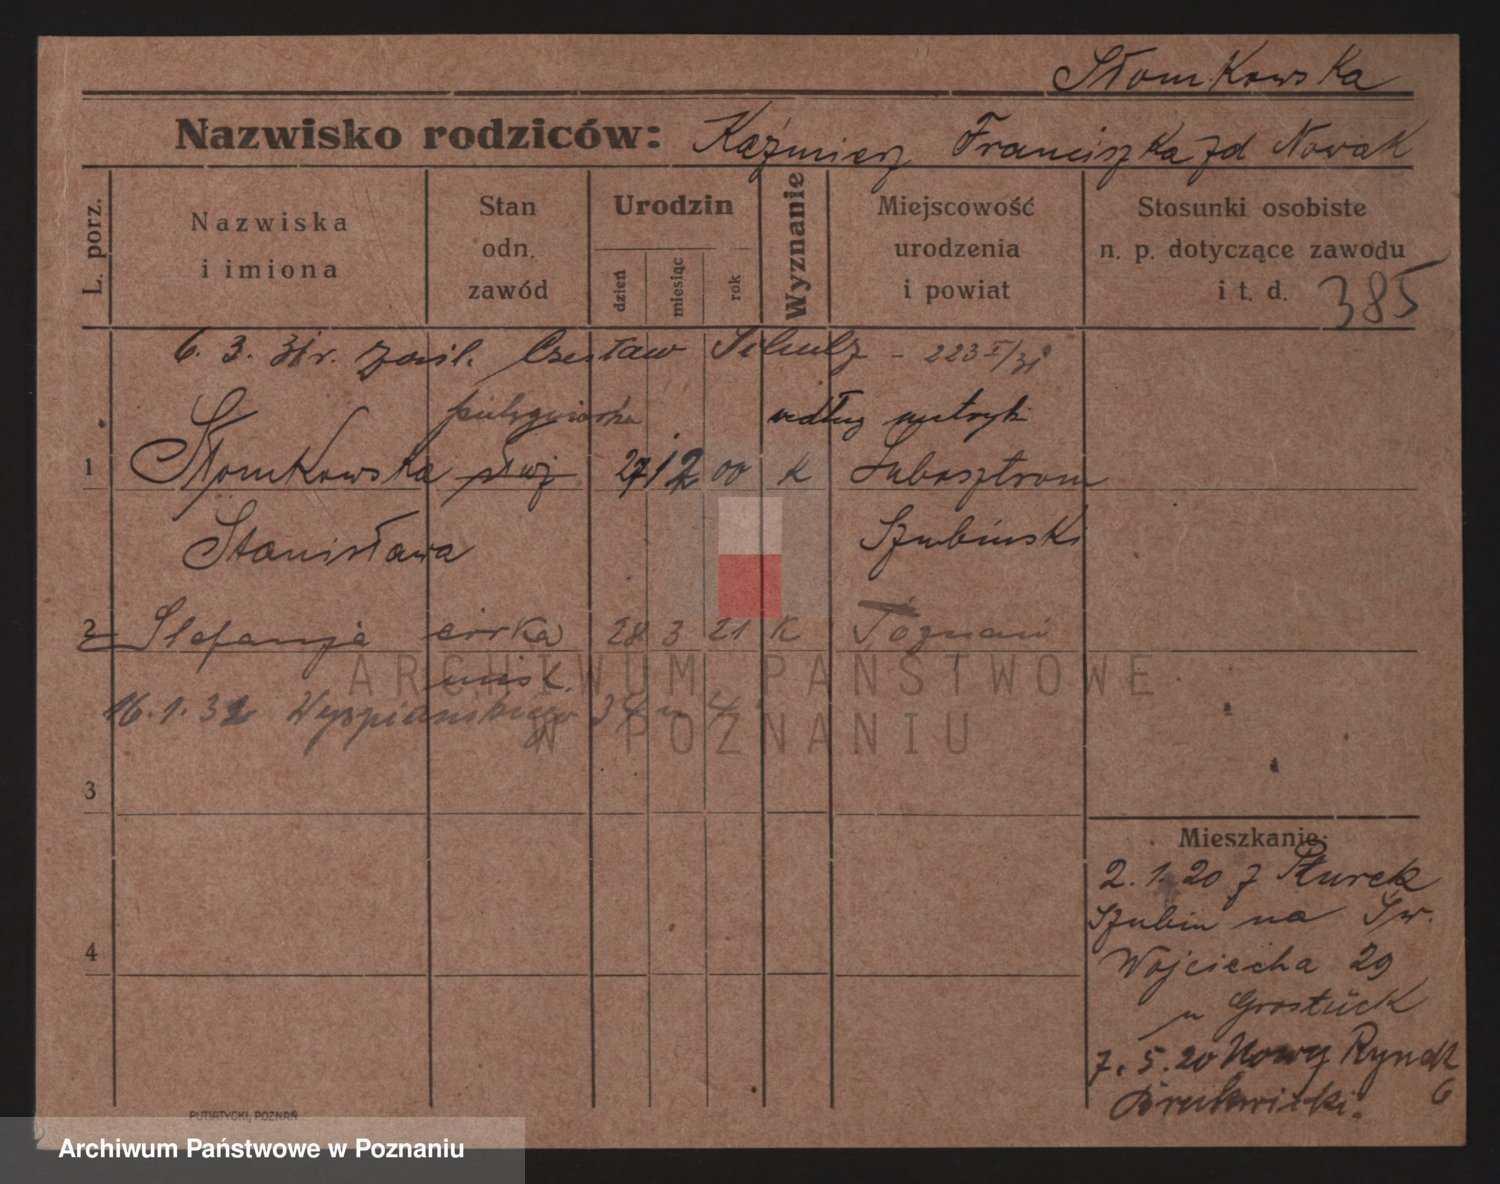 Słomkowska
Nazwisko rodziców: Kaźmierz Franciszka zd Nowak
L. porz.
Nazwiska i imiona
Stan odn. zawód
Urodzin
dzień
miesiąc
rok
Wyznanie
Miejscowość urodzenia i powiat
Stosunki osobiste n. p. dotyczące zawodu i t. d.
385
6. 3. 31r. zaśl. Czesław Schulz - 223 I/31
pielęgniarka według metryki
1 Słomkowska służ 27 12 00 K Lubosztron
Stanisława Szubinski
2 Stefanja córka 28 3 21 K Poznań
nieśl.
16.1.32 Wyspiańskiego 34 m 4
3
4
Mieszkanie:
2. 1. 20 z Turek
Szubin na Św.
Wojciecha 29
u Grostück
7. 5. 20 Nowy Rynek
6
PUTIATYCKI, POZNAŃ
ARCHIWUM PAŃSTWOWE
W POZNANIU
Archiwum Państwowe w Poznaniu